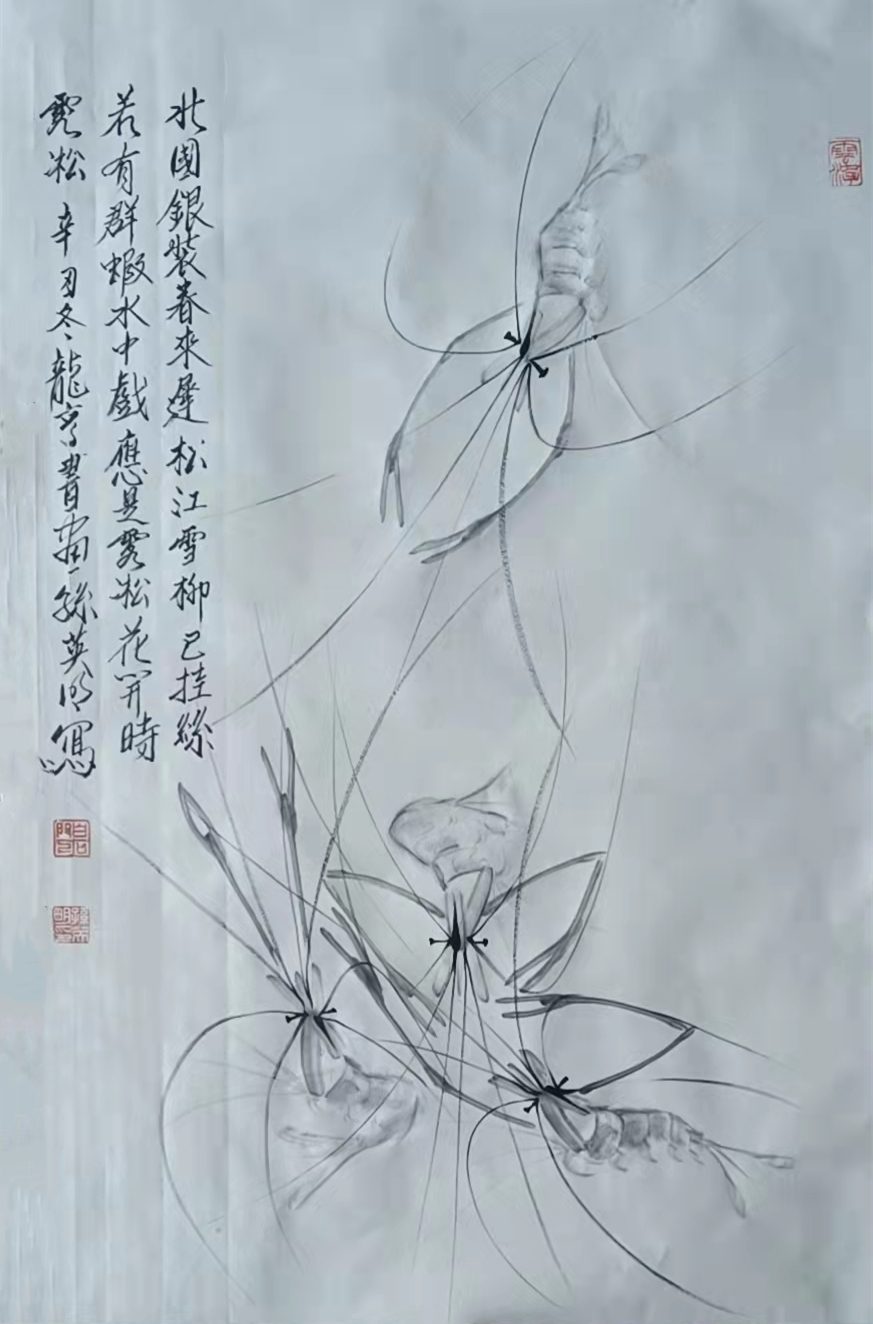 北國銀裝春來遲松江雪柳已挂絲
若有群蝦水中戲應是霧松花開時
霧凇 辛丑冬龍亭書畫絲英明寫